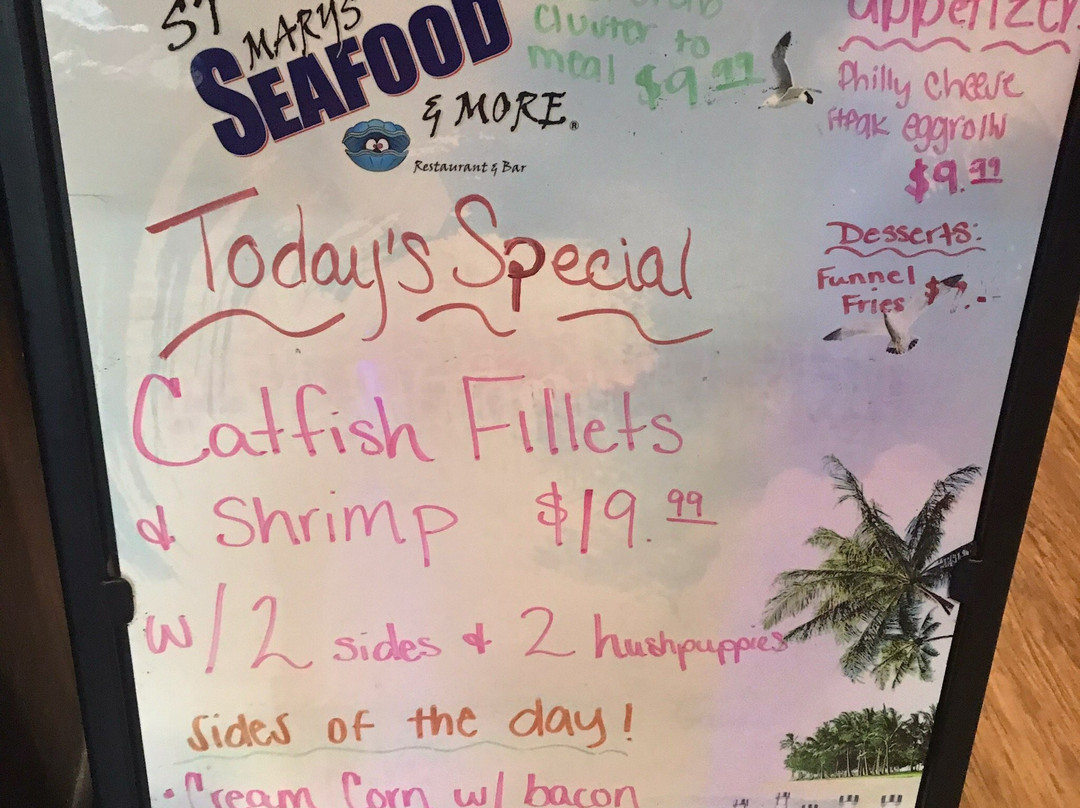 ST MARYS
SEAFOOD
& MORE®
Restaurant & Bar
to
meal $9.99
appetizer
Philly Cheese
Steak eggrolls
$9.99
Desserts:
Funnel
Fries
Today's Special
Catfish Fillets
& Shrimp $19.99
w/2 sides & 2 hushpuppies
Sides of the day!
• Cream Corn w/ bacon